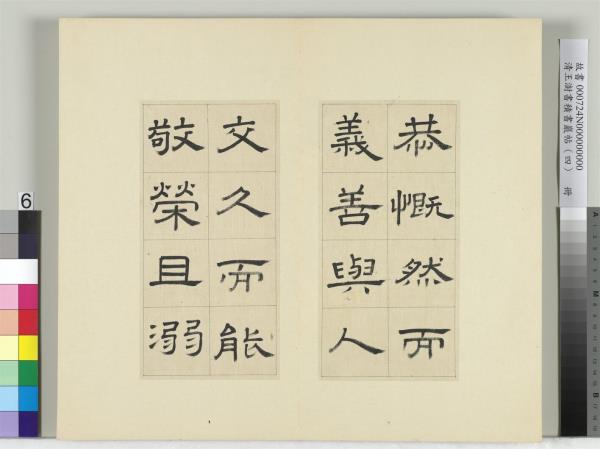 恭慨然而
義善與人
交久而能
敬榮且溺
故書 000724N000000000
清王澍書積書巖帖(四) 冊
6
A
M
B